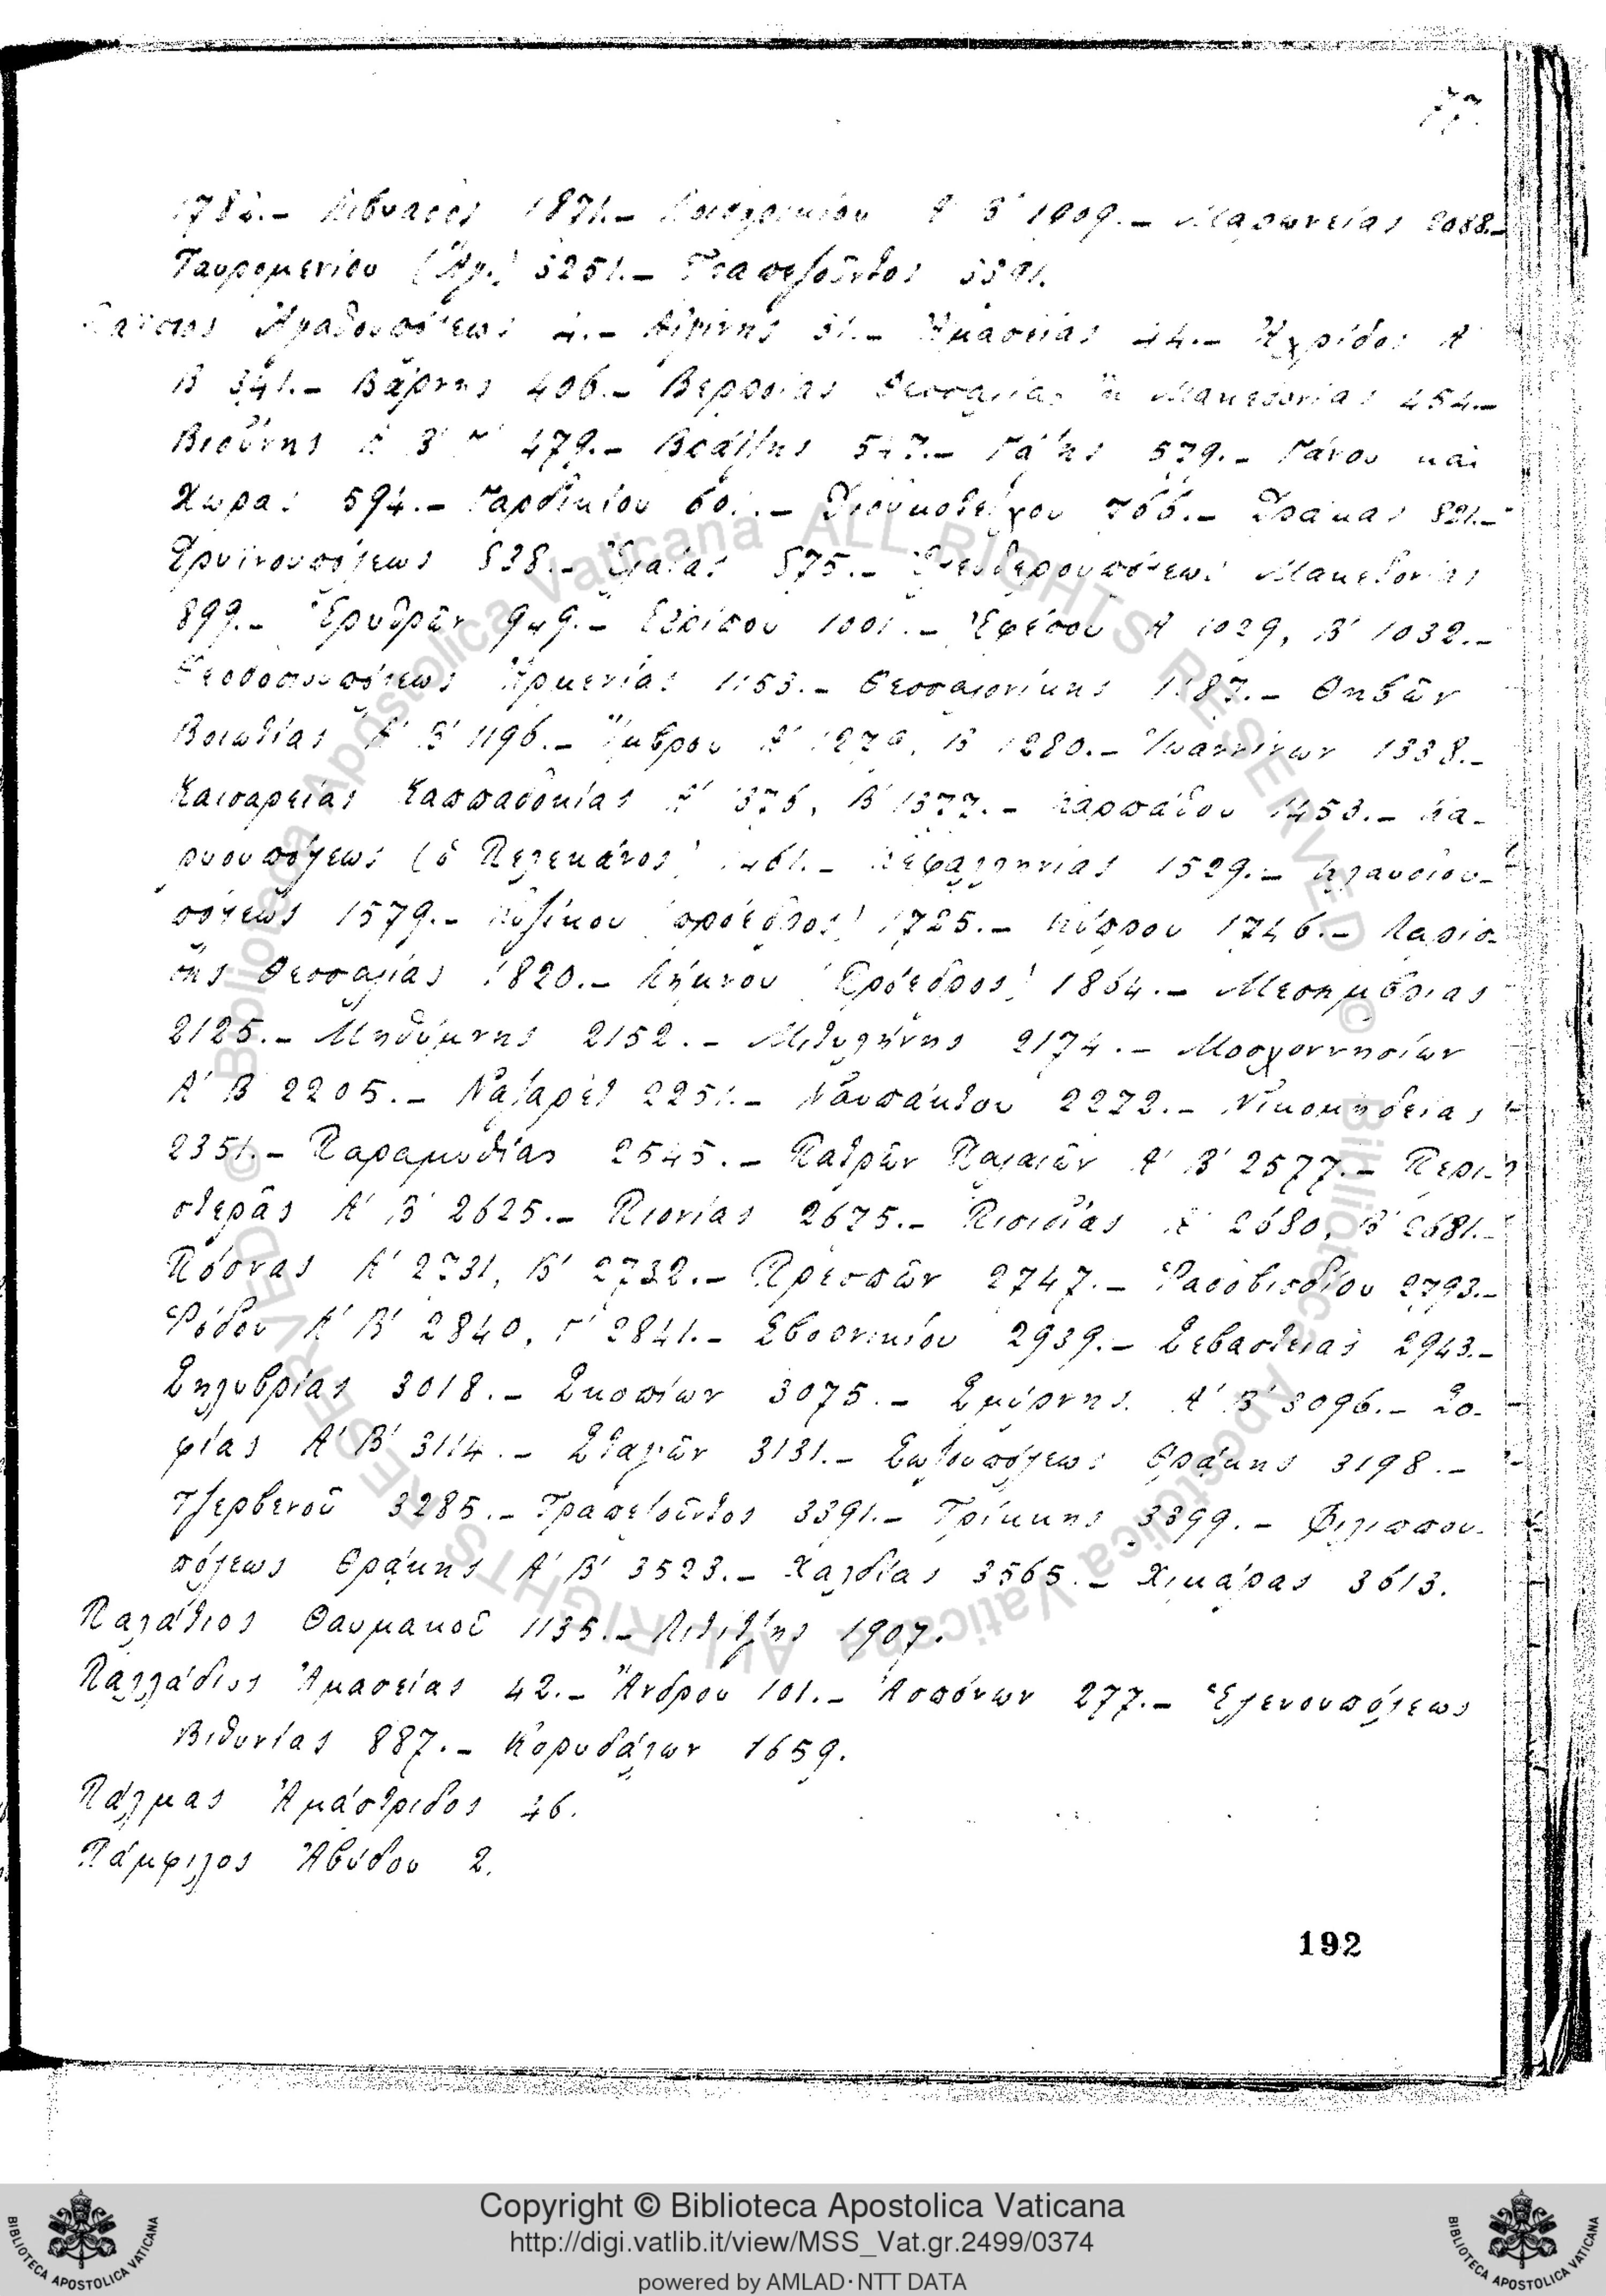 77.
Λιβυάδος 1871.– Λιτζηνικίου Α' Β' 1909.– Μαρωνείας 2088.–
Ταυρομενίου (Ἅγ.) 3251.– Τραπεζοῦντος 3391.
Ἀγαθουπόλεως 4.– Αἰγίνης 31.– Ἀμασείας 44.– Ἀχρίδος Α'
Β' 341.– Βάρνης 406.– Βερροίας Θεσσαλίας ἢ Μακεδονίας 454.–
Βιζύης Α' Β' Γ' 479.– Βράτζης 547.– Γάζης 579.– Γάνου καὶ
Χώρας 594.– Γαρδικίου – 766.– Δράμας 821.–
Δρυϊνουπόλεως 838.– Ἐλαίας 875.– Ἐλευθερουπόλεως Μακεδονίας
899.– Ἐρυθρῶν 949.– Εὐρίπου 1001.– Ἐφέσου Α' 1029, Β' 1032.–
Θεοδοσιουπόλεως Ἀρμενίας 1153.– Θεσσαλονίκης 1187.– Θηβῶν
Βοιωτίας Α' Β' 1196.– Ἴμβρου Α' 1279, Β' 1280.– Ἰωαννίνων 1338.–
Καισαρείας Καππαδοκίας Α' 1376, Β' 1377.– Καρπάθου 1453.– Κα-
ρυουπόλεως (ὁ Πελεκάνος) 1461.– Κεφαλληνίας 1529.– Κλαυδιου-
πόλεως 1579.– Κυζίκου (πρόεδρος) 1725.– Κύπρου 1746.– Λαρίσ-
σης Θεσσαλίας 1820.– Λήμνου (Πρόεδρος) 1864.– Μεσημβρίας
2125.– Μηθύμνης 2152.– Μιτυλήνης 2174.– Μοσχοννησίων
Α' Β' 2205.– Ναζαρὲτ 2251.– Ναυπάκτου 2272.– Νικομηδείας
2351.– Παραμυθίας 2545.– Πατρῶν Παλαιῶν Α' Β' 2577.– Περι-
στερᾶς Α' Β' 2625.– Πιονίας 2675.– Πισιδίας Α' 2680, Β' 2681.–
Πόρνας Α' 2731, Β' 2732.– Πρεσπῶν 2747.– Ῥασοβισδίου 2793.–
Ῥόδου Α' Β' 2840, Γ' 2841.– Σβορνικίου 2939.– Σεβαστείας 2943.–
Σηλυβρίας 3018.– Σκοπίων 3075.– Σμύρνης Α' Β' 3096.– Σο-
φίας Α' Β' 3114.– Σταγῶν 3131.– Σωζουπόλεως Θράκης 3198.–
Τζερβενοῦ 3285.– Τραπεζοῦντος 3391.– Τρίκκης 3399.– Φιλιππου-
πόλεως Θράκης Α' Β' 3523.– Χαλδίας 3565.– Χιμάρας 3613.
Παλάτιος Θαυμακοῦ 1135.– Λιτίτζης 1907.
Παλλάδιος Ἀμασείας 42.– Ἄνδρου 101.– Ἀσπόνων 277.– Ἑλενουπόλεως
Βιθυνίας 887.– Κορυδάλων 1659.
Πάλμας Ἀμάστριδος 46.
Πάμφιλος Ἀβύδου 2.
192
Copyright © Biblioteca Apostolica Vaticana
http://digi.vatlib.it/view/MSS_Vat.gr.2499/0374
powered by AMLAD·NTT DATA